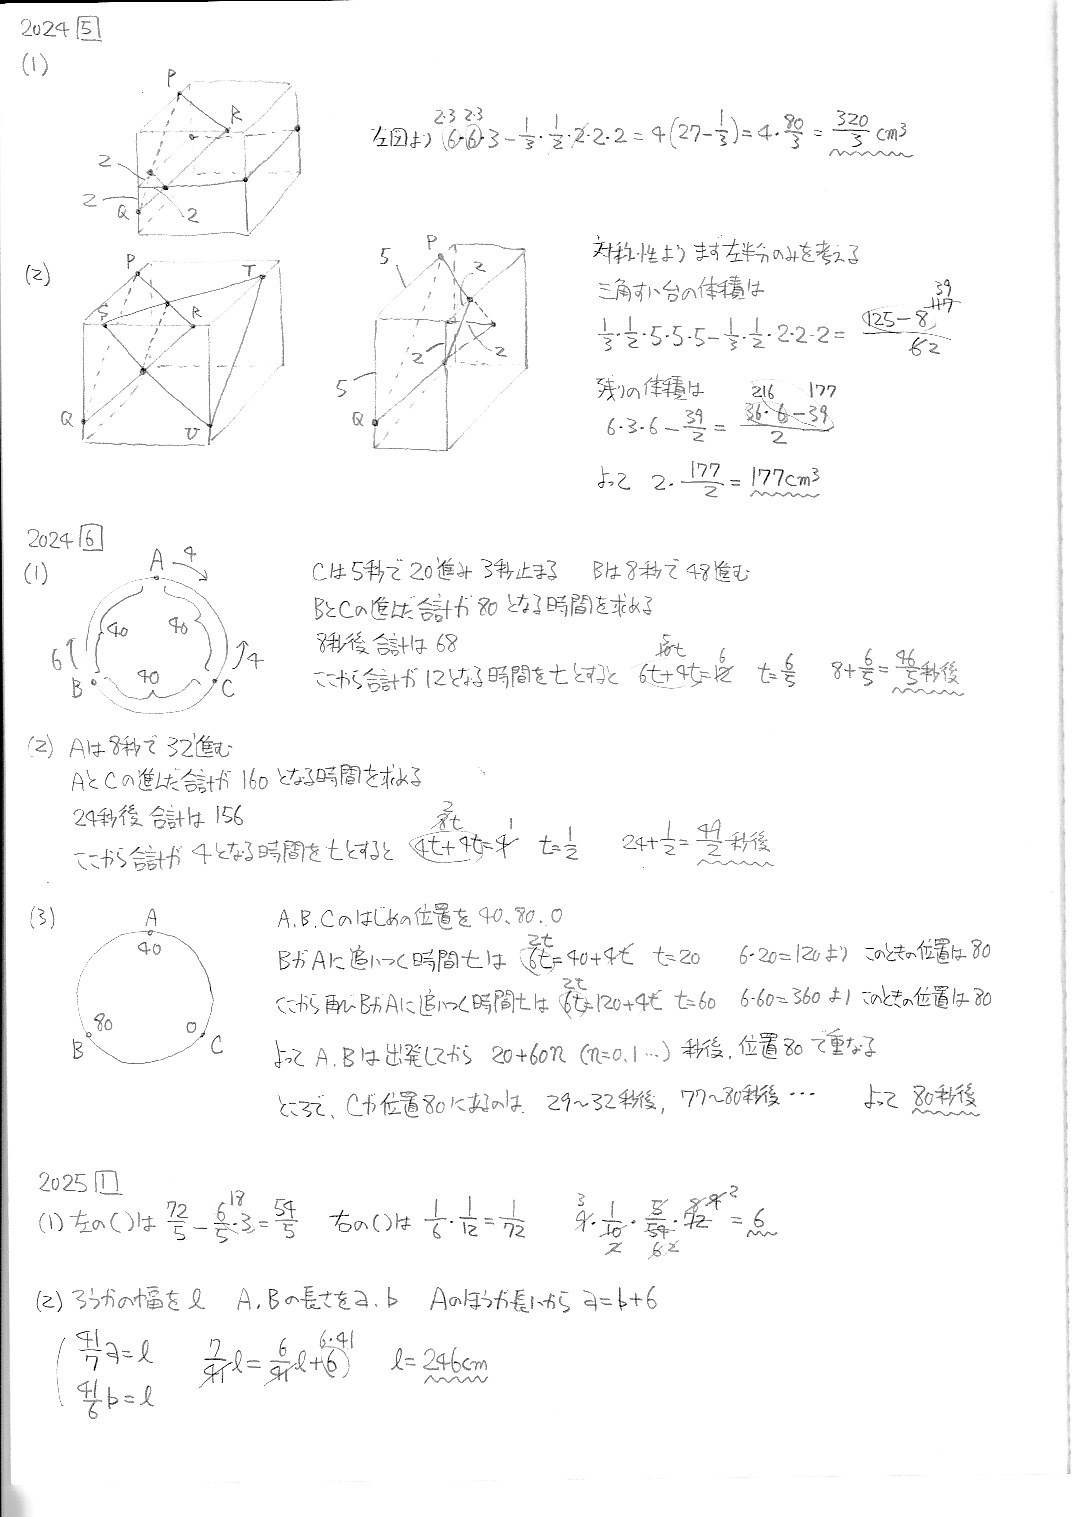 2024 5
(1)
P
R
Q
2
2
2
左図より 6・6・3 - 1/3・1/2・2・2・2 = 4(27 - 1/3) = 4・80/3 = 320/3 cm³
2・3 2・3
(2)
P T
S R
Q U
P
5
2
2
2
5
Q
対称性よりまず左半分のみを考える
三角すい台の体積は
1/3・1/2・5・5・5 - 1/3・1/2・2・2・2 = (125-8)/62
39
117
残りの体積は
6・3・6 - 39/2 = (36・6-39)/2
216 177
よって 2・177/2 = 177cm³
2024 6
(1)
A 4
40 40
6 4
B 40 C
Cは5秒で20進み3秒止まる Bは8秒で48進む
BとCの進んだ合計が80となる時間を求める
8秒後合計は68
ここから合計が12となる時間をtとすると 6t+4t=12 t=6/5 8+6/5=46/5秒後
5t 6
(2) Aは8秒で32進む
AとCの進んだ合計が160となる時間を求める
24秒後合計は156
ここから合計が4となる時間をtとすると 4t+4t=4 t=1/2 24+1/2=49/2秒後
2
8t 1
(3)
A
40
80 0
B C
A,B,Cのはじめの位置を40、80、0
BがAに追いつく時間tは 6t=40+4t t=20 6・20=120より このときの位置は80
2t
ここから再びBがAに追いつく時間tは 6t=120+4t t=60 6・60=360より このときの位置は80
2t
よってA,Bは出発してから 20+60n (n=0,1…) 秒後、位置80で重なる
ところで、Cが位置80にあるのは、29〜32秒後, 77〜80秒後… よって 80秒後
2025 1
(1) 左の( )は 72/5 - 6/5・3 = 54/5 右の( )は 1/6・1/12 = 1/72 9・1/10・5/54・72 = 6
18 3 8 9 2
2 6 2
(2) ろうかの幅をl A,Bの長さをa,b Aのほうが長いから a=b+6
41/7 a=l 7/41 l = 6/41 l+6 l=246cm
6・41
41/6 b=l